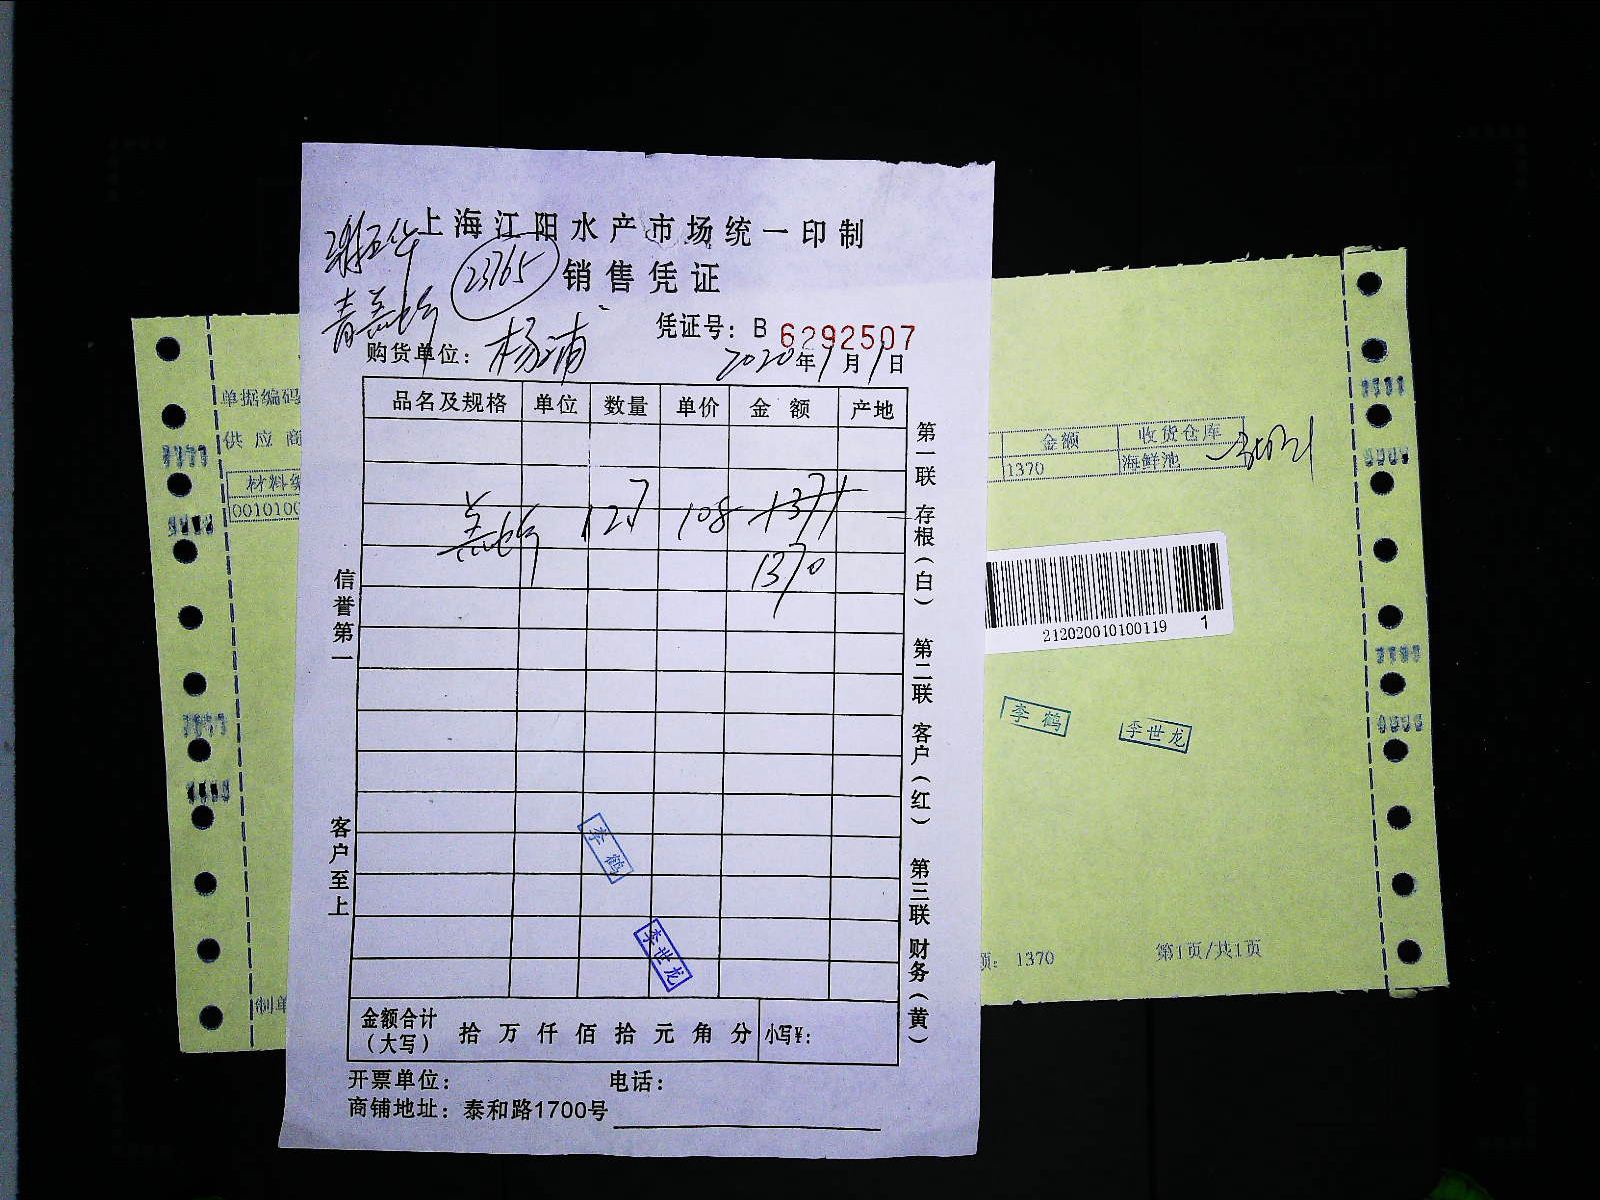 上海江阳水产市场统一印制
23765
销售凭证
凭证号：B 6292507
购货单位：杨浦
2020年1月1日
品名及规格 单位 数量 单价 金额 产地
127 108 1371
1370
信誉第一
客户至上
第一联 存根（白） 第二联 客户（红） 第三联 财务（黄）
李鹤
李世龙
金额合计（大写） 拾 万 仟 佰 拾 元 角 分 小写¥：
开票单位： 电话：
商铺地址：泰和路1700号
单据编码
供应商
材料编
001010
制单
金额 收货仓库
1370 海鲜池
212020010100119 1
李鹤
李世龙
额：1370
第1页/共1页